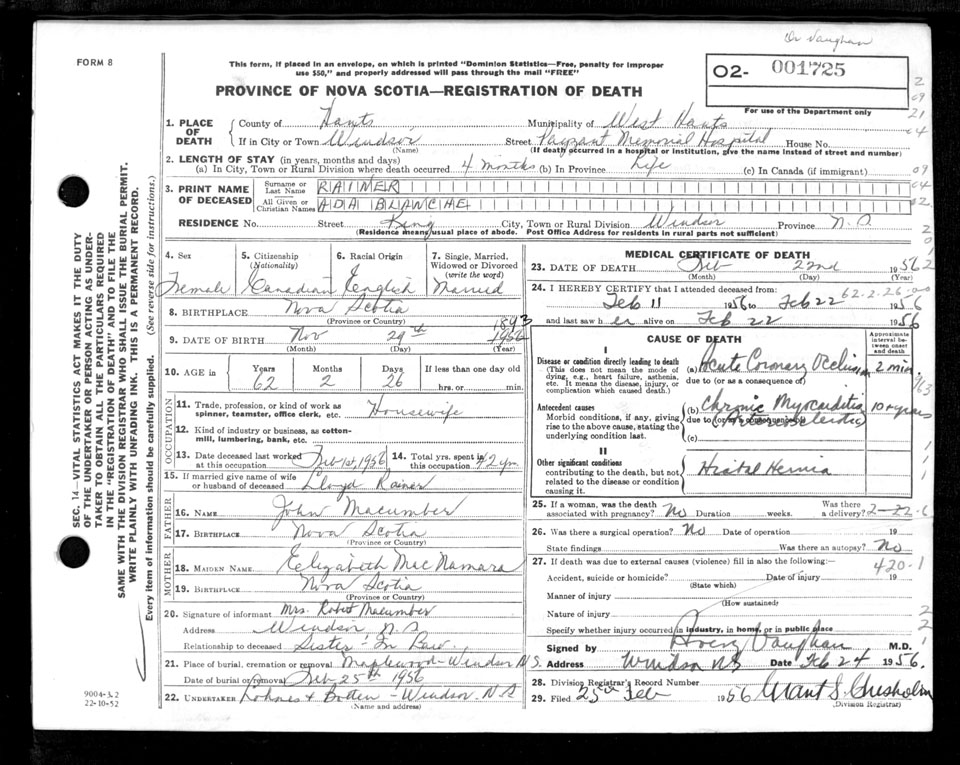 Dr Vaughan
FORM 8
This form, if placed in an envelope, on which is printed "Dominion Statistics—Free, penalty for improper
use $50," and properly addressed will pass through the mail "FREE"
O2- 001725
For use of the Department only
PROVINCE OF NOVA SCOTIA—REGISTRATION OF DEATH
1. PLACE OF DEATH
County of Hants Municipality of West Hants
If in City or Town Windsor Street Payzant Memorial Hospital House No.
(Name) (If death occurred in a hospital or institution, give the name instead of street and number)
2. LENGTH OF STAY (in years, months and days)
(a) In City, Town or Rural Division where death occurred 4 months (b) In Province Life (c) In Canada (if immigrant)
3. PRINT NAME OF DECEASED
Surname or Last Name RAINER
All Given or Christian Names ADA BLANCHE
RESIDENCE No. Street King City, Town or Rural Division Windsor Province N.S.
(Residence means usual place of abode. Post Office Address for residents in rural parts not sufficient)
4. Sex Female
5. Citizenship (Nationality) Canadian
6. Racial Origin English
7. Single, Married, Widowed or Divorced (write the word) Married
8. BIRTHPLACE Nova Scotia
(Province or Country)
9. DATE OF BIRTH Nov 29th 1893 1956
(Month) (Day) (Year)
10. AGE in Years 62 Months 2 Days 26 If less than one day old
hrs. or min.
OCCUPATION
11. Trade, profession, or kind of work as spinner, teamster, office clerk, etc. Housewife
12. Kind of industry or business, as cotton-mill, lumbering, bank, etc.
13. Date deceased last worked at this occupation Feb 1st, 1956
14. Total yrs. spent in this occupation 42 yrs.
15. If married give name of wife or husband of deceased Lloyd Rainer
FATHER
16. NAME John Macumber
17. BIRTHPLACE Nova Scotia
(Province or Country)
MOTHER
18. MAIDEN NAME Elizabeth MacNamara
19. BIRTHPLACE Nova Scotia
(Province or Country)
20. Signature of informant Mrs. Robert Macumber
Address Windsor, N.S
Relationship to deceased Sister In Law
21. Place of burial, cremation or removal Maplewood - Windsor N.S.
Date of burial or removal Feb 25th 1956
22. UNDERTAKER Lohnes & Boden - Windsor N.S
(Name and address)
MEDICAL CERTIFICATE OF DEATH
23. DATE OF DEATH Feb 22nd 1956
(Month) (Day) (Year)
24. I HEREBY CERTIFY that I attended deceased from:
Feb 11 1956 to Feb 22 1956
62-2-26-00
and last saw her alive on Feb 22 1956
CAUSE OF DEATH
Approximate interval between onset and death
I
Disease or condition directly leading to death
(This does not mean the mode of dying, e.g., heart failure, asthenia, etc. It means the disease, injury, or complication which caused death.)
(a) Acute Coronary Occlusion 2 min.
due to (or as a consequence of)
Antecedent causes
Morbid conditions, if any, giving rise to the above cause, stating the underlying condition last.
(b) Chronic Myocarditis 10+ years
due to (or as a consequence of)
(c)
II
Other significant conditions
contributing to the death, but not related to the disease or condition causing it.
Hiatal Hernia
25. If a woman, was the death associated with pregnancy? No Duration weeks. Was there a delivery?
2-22-6
26. Was there a surgical operation? No Date of operation 19
State findings Was there an autopsy? No
27. If death was due to external causes (violence) fill in also the following:— 420-1
Accident, suicide or homicide? Date of injury 19
(State which)
Manner of injury
(How sustained)
Nature of injury
Specify whether injury occurred in industry, in home, or in public place
Signed by Avery Vaughan M.D.
Address Windsor NS Date Feb 24 1956.
28. Division Registrar's Record Number
29. Filed 25th Feb 1956 Grant S. Chisholm
(Division Registrar)
SEC. 14—VITAL STATISTICS ACT MAKES IT THE DUTY
OF THE UNDERTAKER OR PERSON ACTING AS UNDER-
TAKER TO OBTAIN ALL THE PARTICULARS REQUIRED
IN THE "REGISTRATION OF DEATH" AND TO FILE THE
SAME WITH THE DIVISION REGISTRAR WHO SHALL ISSUE THE BURIAL PERMIT.
WRITE PLAINLY WITH UNFADING INK. THIS IS A PERMANENT RECORD.
Every item of information should be carefully supplied. (See reverse side for instructions.)
9004-3.2
22-10-52